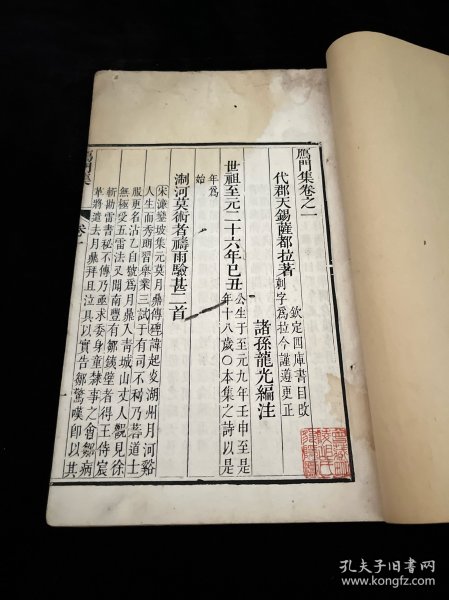 鴈門集卷之一
代郡天錫薩都拉著
欽定四庫書目改
刺字爲拉今謹遵更正
諸孫龍光編注
世祖至元二十六年己丑
公生于至元九年壬申至是
年十八歲○本集之詩以是
年爲
始
溮河莫術者禱雨驗甚二首
宋濂鑾坡集元莫月鼎傳莫諱起炎湖州月河谿
人生而秀朗習舉業三試于有司不利乃著道士
服更名洞乙自號爲月鼎入青城山丈人觀見徐
無極受五雷法又聞南豐有鄒鐵壁者得王侍宸
斬勘雷書秘不傳乃亟求委身童隸事之會鄒病
革將逝去月鼎拜且泣具以實告鄒驚嘆卽以其
鴈門集
卷一
孔夫子旧书网
www.kongfz.com